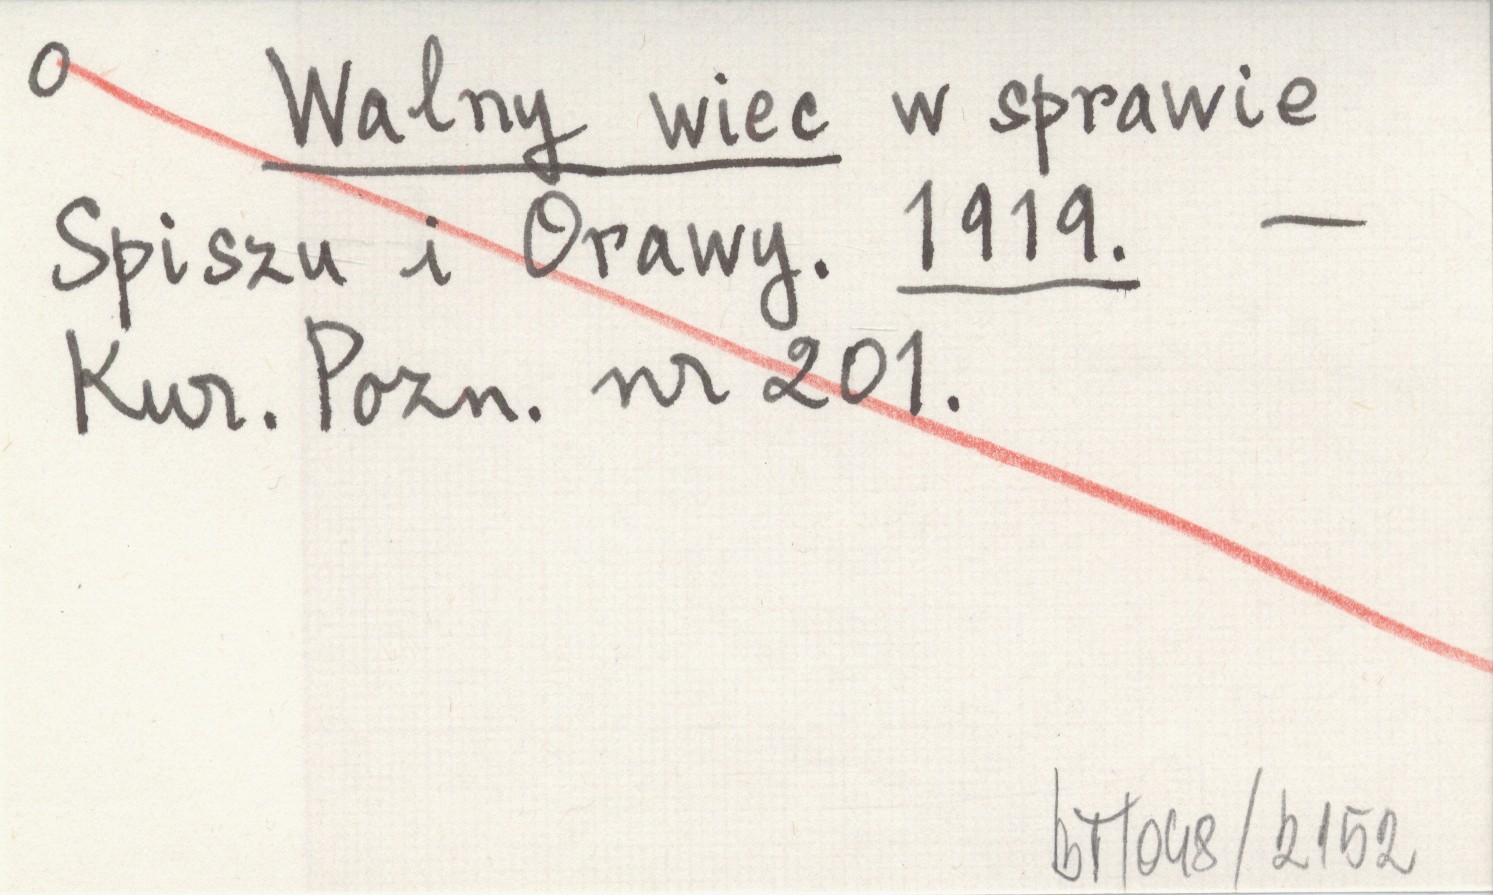 O Walny wiec w sprawie
Spiszu i Orawy. 1919. —
Kur. Pozn. nr 201.